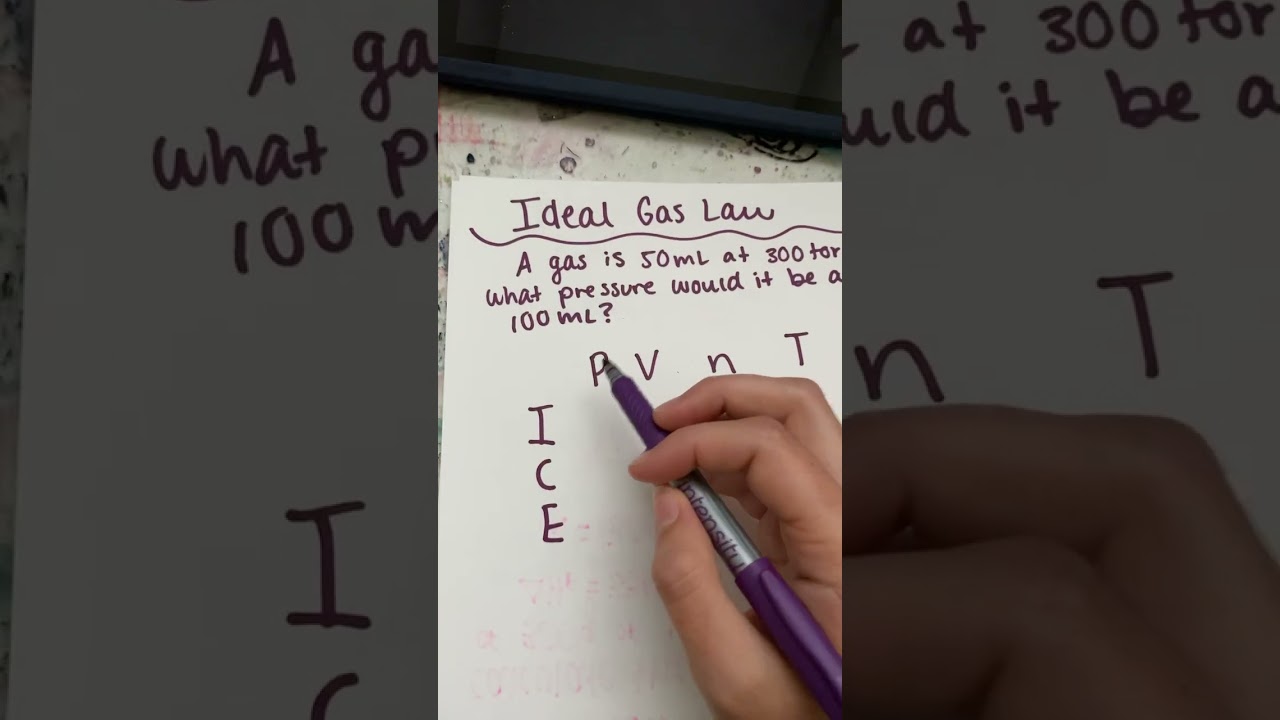 Ideal Gas Law
A gas is 50mL at 300 tor
what pressure would it be a
100 mL?
P V n T
I
C
E
intensity